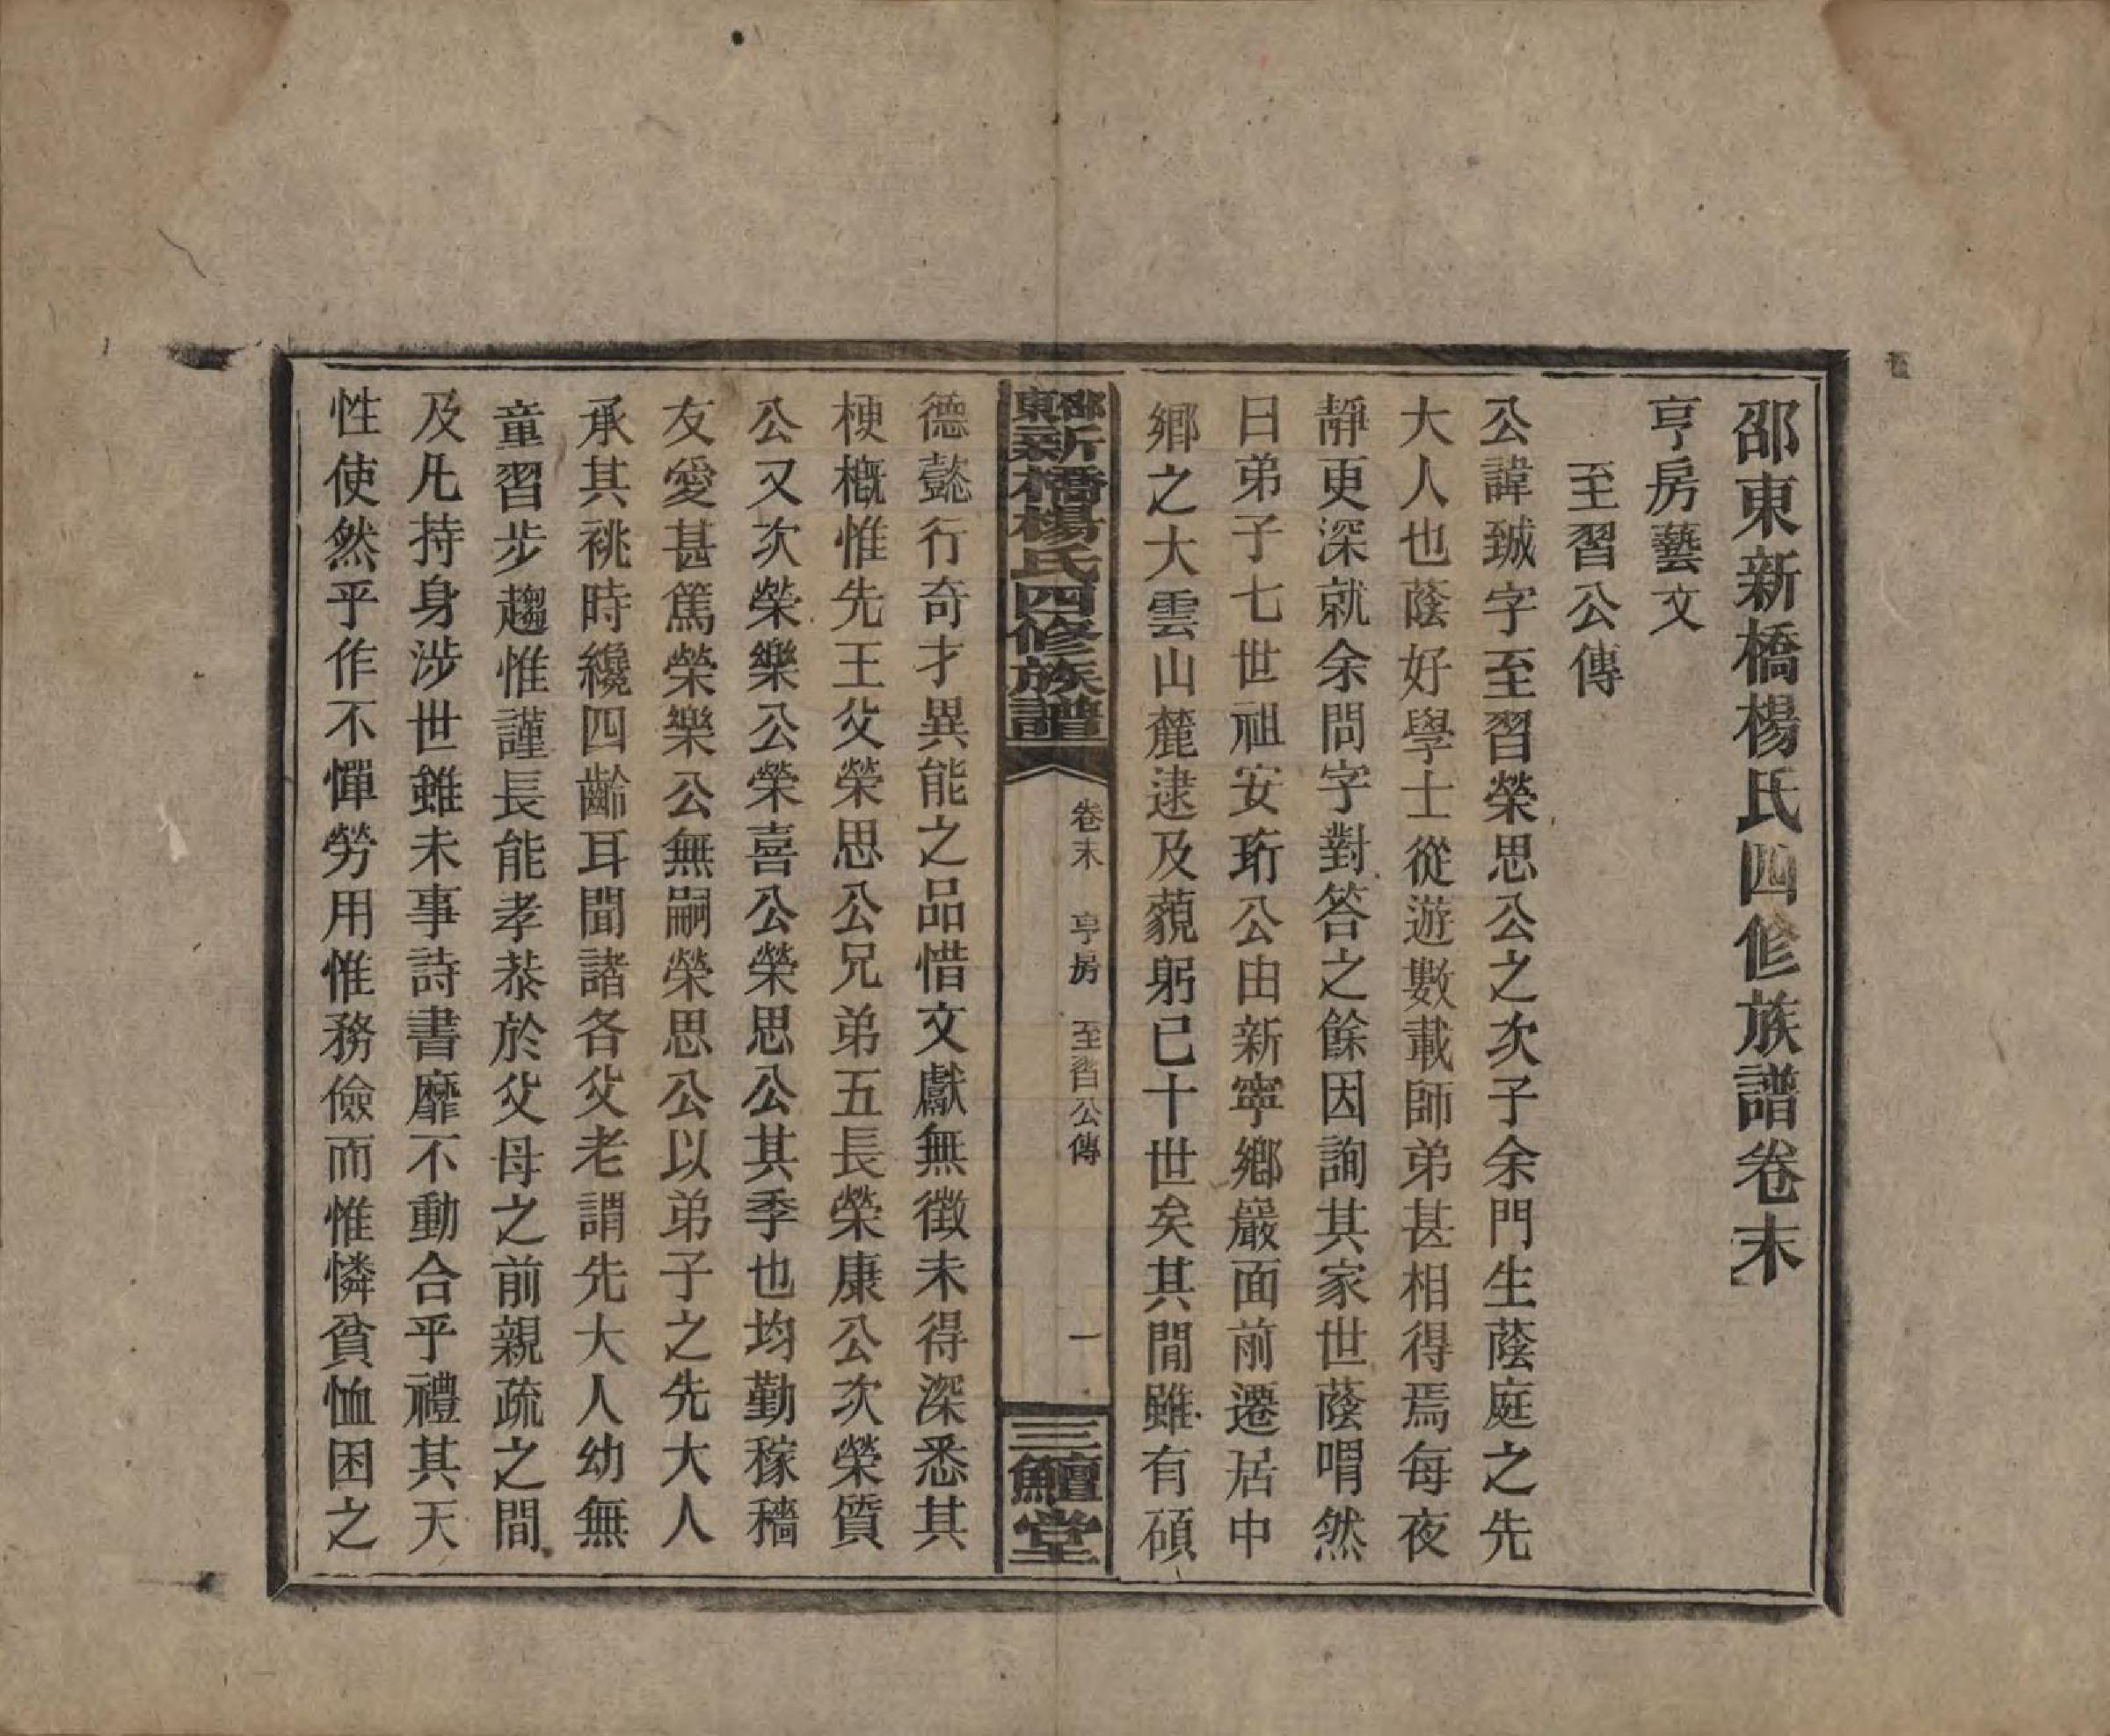 邵東新橋楊氏四修族譜卷末
亨房藝文
至習公傳
公諱鋮字至習榮思公之次子余門生蔭庭之先
大人也蔭好學士從遊數載師弟甚相得焉每夜
靜更深就余問字對答之餘因詢其家世蔭喟然
曰弟子七世祖安珩公由新寧鄉嚴面前遷居中
鄉之大雲山麓逮及藐躬已十世矣其間雖有碩
邵東新橋楊氏四修族譜
卷末 亨房 至習公傳 一
三鱣堂
德懿行奇才異能之品惜文獻無徵未得深悉其
梗概惟先王父榮思公兄弟五長榮康公次榮質
公又次榮樂公榮喜公榮思公其季也均勤稼穡
友愛甚篤榮樂公無嗣榮思公以弟子之先大人
承其祧時纔四齡耳聞諸各父老謂先大人幼無
童習步趨惟謹長能孝恭於父母之前親疏之間
及凡持身涉世雖未事詩書靡不動合乎禮其天
性使然乎作不憚勞用惟務儉而惟憐貧恤困之